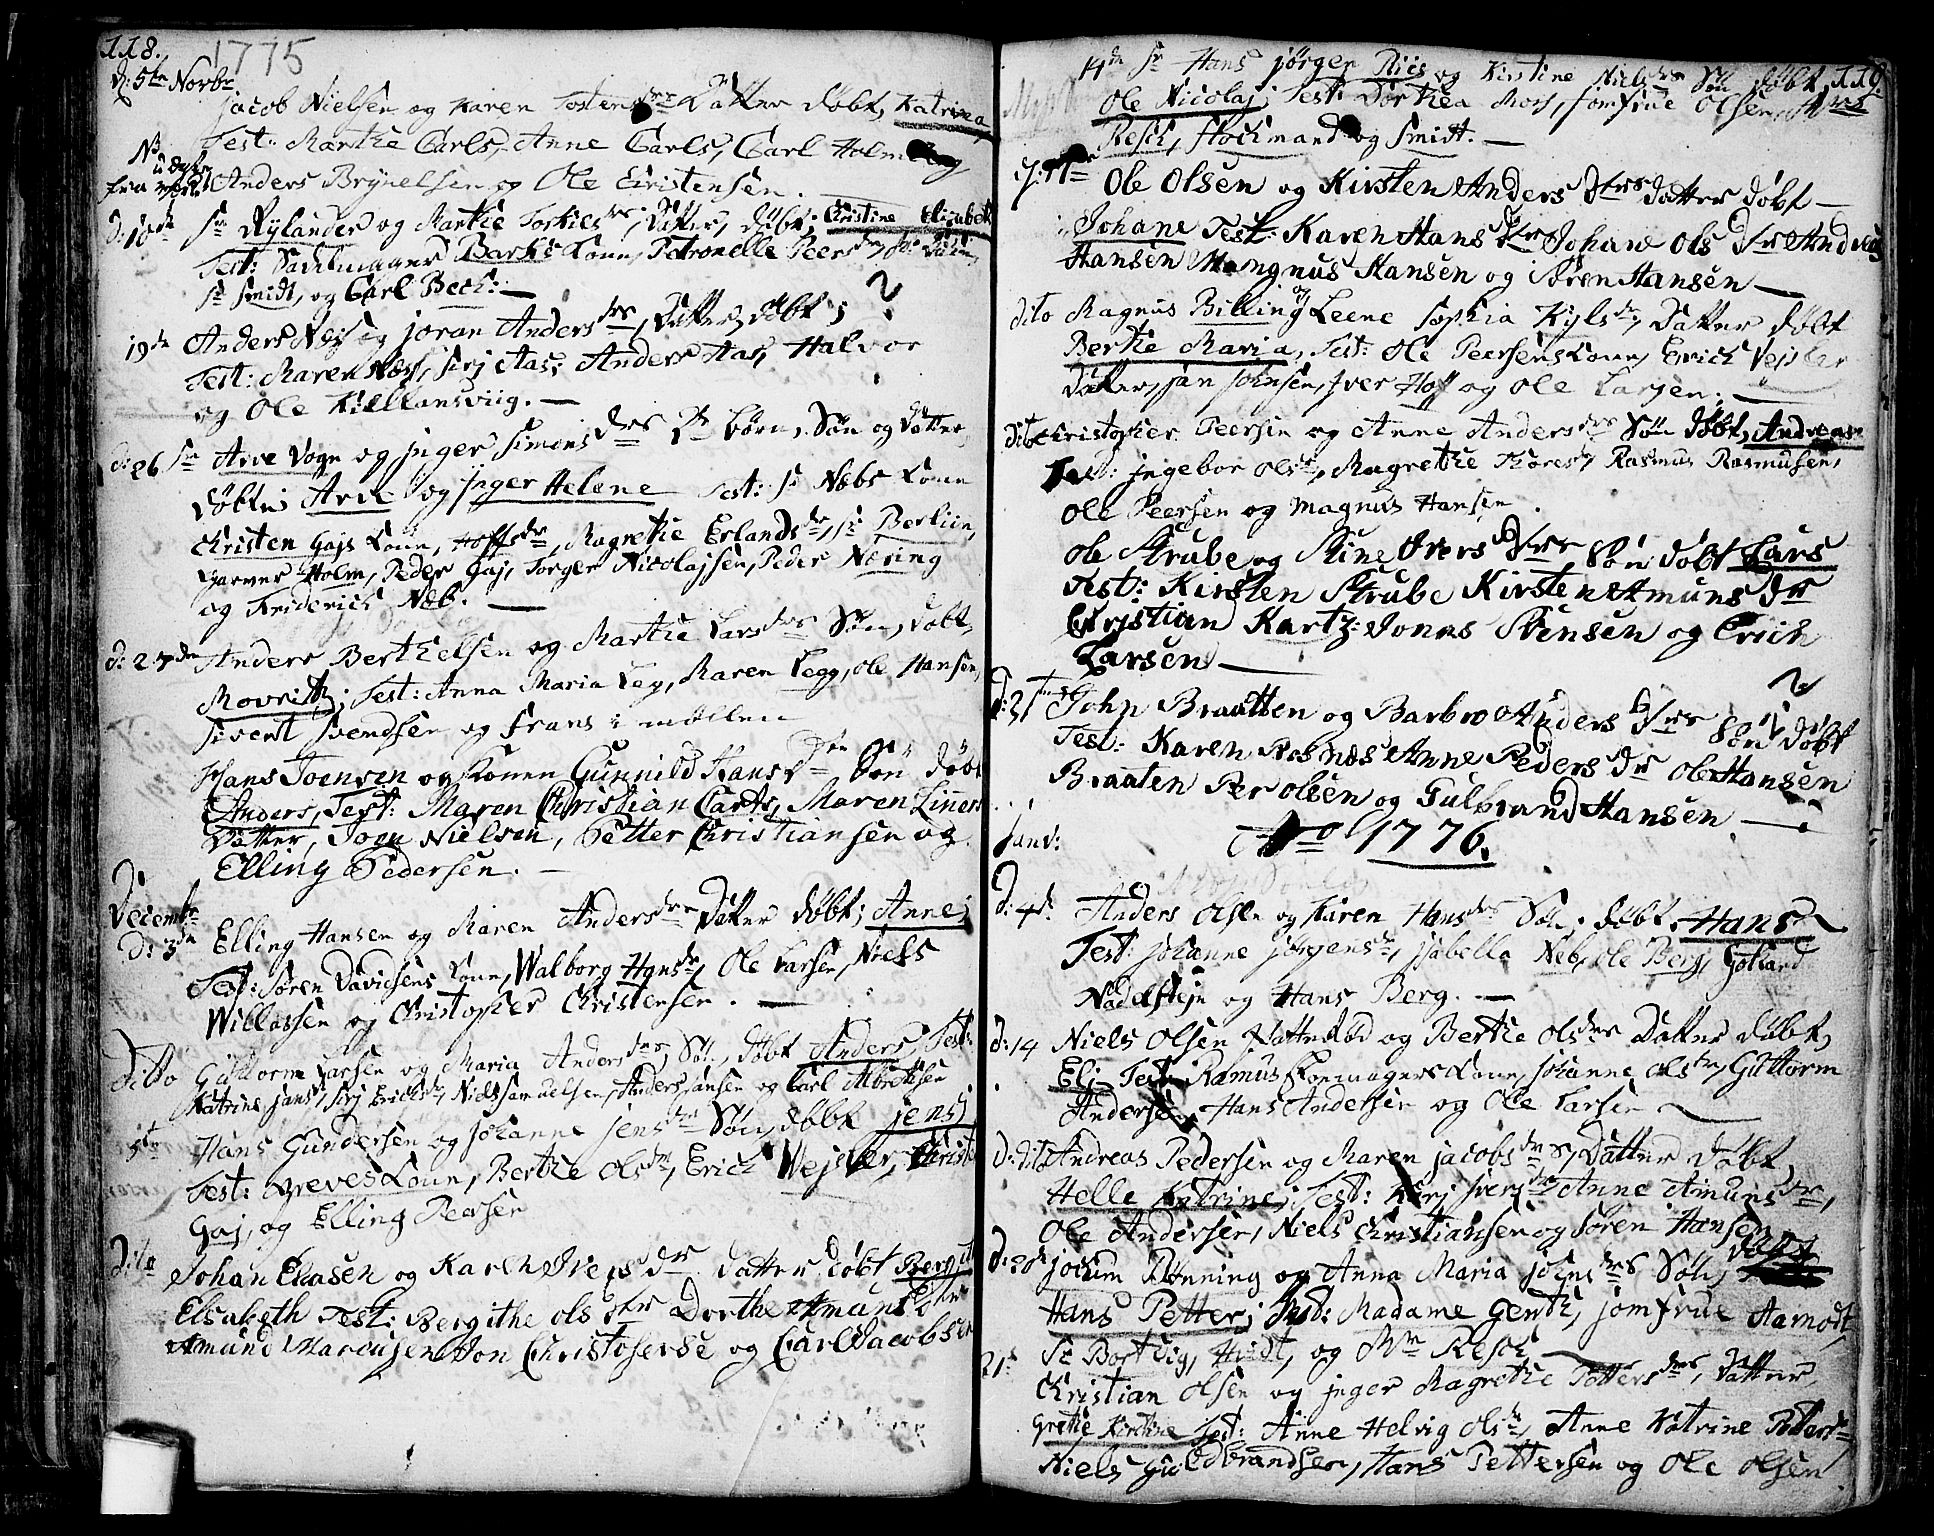 118.
1775
d: 5te Novbr
Jacob Nielsen og Karen Tostensdr Datter døbt, Katrina
Test: Marthe Carls, Anne Carls, Carl Holm
Anders Brynelsen og Ole Christensen.
d: 18de Sr Rylander og Marthe Torkilsdr, Datter, døbt; Christine Elisabeth
Test: Sadelmager Barths Konn, Petronelle Peersdr,
Sr Smidt, og Carl Bech: —
19de Anders Næs og Joran Andersdtr, Datter døbt;
Test: Maren Næss, Sirj Aas, Anders Aas, Halvor
og Ole Kiellansviig. —
d: 26 Sr Arve Vogn og Jnger Simonsdtr 2de børn, Søn og Datter,
døbte; Arve og Jnger Helene Test: Sr Næbs Konn
Christen Gajs Konn, Hoffsdtr, Magrethe Erlandsdr, Sr Berliin,
Garver Holm, Peder Gaj, Torger Nicolajsen, Peder Næring
og Friderich Næb. —
d: 27den Anders Berthelsen og Marthe Larsdtr Søn, døbt,
Movritz; Test: Anna Maria Leg, Maren Legg, Ole Hansen,
Sivert Svendsen og Frans i Møllen
Hans Joensen og Konen Gunnild Hansdtr Søn døbt
Anders, Test: Maren Christian Carts, Maren Liners
Datter, Joen Nielsen, Petter Christiansen og
Elling Pedersen. —
Decembr
d: 3de Elling Hansen og Maren Andersdtr Datter døbt; Anne;
Test: Søren Davidsens Konn, Walborg Hansdr, Ole Larsen, Niels
Willassen og Christopher Christensen. —
Ditto Guttorm Larsen og Maria Andersdtr, Søn, døbt Anders, Test:
Katrine Jans, Sirj Erichsdr, Niels Samuelsen, Anders Jansen og Carl Albretsen
5te Hans Gundersen og Johanne Jensdtr Søn døbt Jens,
Test: Greves Konn, Berthe Olsdr, Erich Wejsler, Christen
Gaj, og Elling Peersen
Dito Johan Eliasen og Karen Iversdr Datter døbt Bergit
Elsabeth Test: Bergithe Olsdtr Dorthe Amunsdtr
Amund Marcusen Jon Christoferse og Carl Jacobsen
119.
14de Sr Hans Jørgen Riis og Kirstine Nielsdtr Søn døbt,
Ole Nicolaj; Test: Dorthea Mors, Jomfrue Olsen, Mrs
Resch, Stochmand og Smidt. —
Ole Olsen og Kirsten Andersdtrs datter døbt —
Johane Test: Karen Hansdtr Johane Olsdtr Andreas
Hansen Mangnus Hansen og Søren Hansen —
dito Magnus Billing og Leene Sophia Kylsdr, Datter døbt
Berthe Maria, Test: Ole Peersens Konn, Erich Vejsler
Datter, Jan Johnsen, Iver Hoff og Ole Larsen. —
dito Christopher Peersen og Anne Andersdtr Søn døbt, Andreas
Test: Jngebor Olsdr, Magrethe Thoresdr, Rasmus Rasmusen,
Ole Peersen og Magnus Hansen.
Ole Strube og Stine Iversdtr Søn døbt Lars
Test: Kirsten Strube Kirsten Amunsdr
Christian Kartz: Jonas Svensen og Erich
Larsen —
d: 31te John Braatten og Barbro Andersdtrs Søn døbt
Test: Karen Rosnæs Anne Pedersdr Ole Hansen
Braaten Per Olsen og Gulbrand Hansen —
Janv: Ao 1776.
d: 4de Anders Olsen og Karen Hansdtr Søn, døbt, Hans
Test: Johanne Jørgensdr, Jsabella Neb, Ole Berg, Gothard
Nadelstejn og Hans Berg. —
d: 14 Niels Olsen Natterød og Berthe Olsdtr Datter døbt,
Eli Test: Ramus Skoemagers Konn, Johanne Olsdtr, Guttorm
Andersen, Hans Andersen og Ole Larsen
d: dito Andreas Pedersen og Maren Jacobsdtr, Datter døbt,
Helle Katrine; Test: Kirj Sverjsdr Anne Amunsdtr,
Ole Andersen, Niels Christiansen og Søren Hansen
d: 20de Jocum Rønning og Anna Maria Johnsdtr Søn, døbt
Hans Petter; Test: Madame Genth, Jomfrue Aamodt,
Sr Bortvig, Hvidt, og Mr Resch
21de Christian Olsen og Jnger Magrethe Pettersdtr, Datter,
Grethe Kirstine Test: Anne Helvig Olsdr, Anne Katrine Petters
Niels Guldbrandsen, Hans Pettersen og Ole Olsen